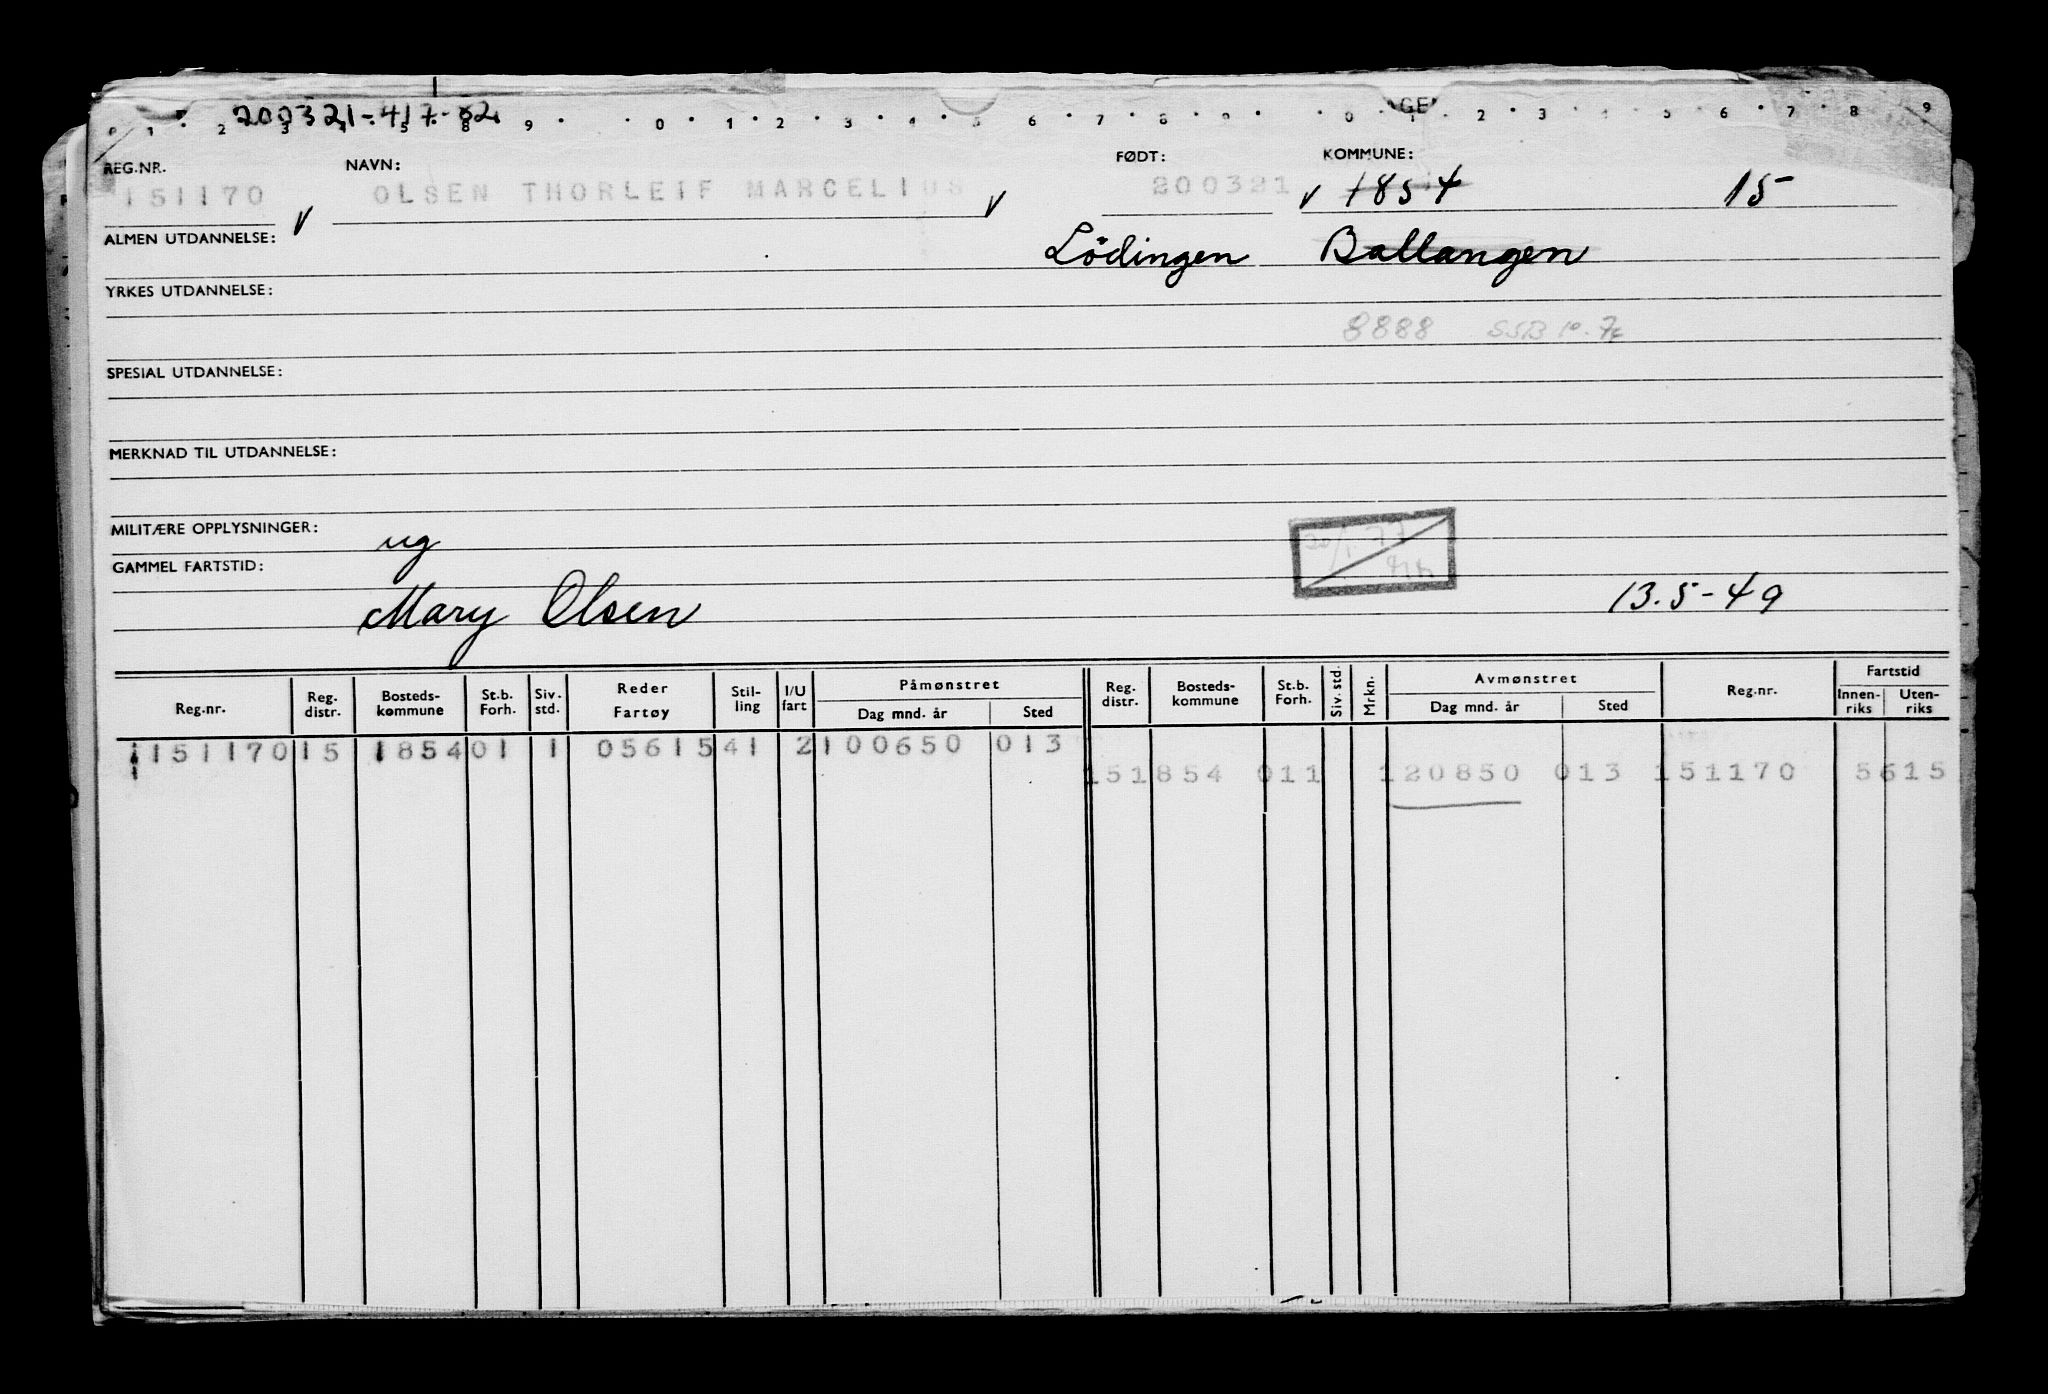 200321-417-82
0 1 2 3 4 5 8 9 0 1 2 3 4 5 6 7 8 9 0 1 2 3 4 5 6 7 8 9
REG.NR. NAVN: FØDT: KOMMUNE:
151170 OLSEN THORLEIF MARCELIUS 200321 1854 15
ALMEN UTDANNELSE: Lödingen Ballangen
YRKES UTDANNELSE:
8888 SSB 10.
SPESIAL UTDANNELSE:
MERKNAD TIL UTDANNELSE:
MILITÆRE OPPLYSNINGER: ug
GAMMEL FARTSTID:
20/1 77
Mary Olsen 13.5-49
Reg.nr. Reg. distr. Bosteds-kommune St.b. Forh. Siv. std. Reder Fartøy Stil-ling I/U fart Påmønstret Dag mnd. år Sted Reg. distr. Bosteds-kommune St.b. Forh. Siv. std. Mrkn. Avmønstret Dag mnd. år Sted Reg.nr. Fartstid Innen-riks Uten-riks
151170 15 1854 01 1 05615 41 2 100650 013
151854 011 120850 013 151170 5615